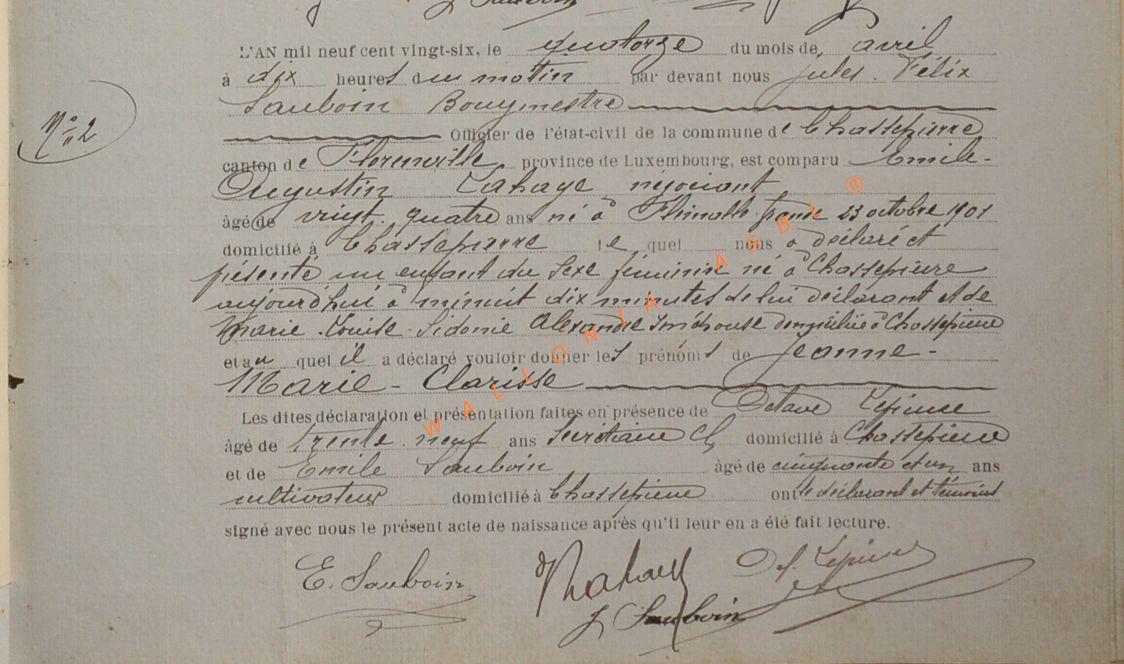 J Sauboin
L'AN mil neuf cent vingt-six, le quatorze du mois de avril
à dix heures du matin par devant nous Jules Félix
Sauboin Bourgmestre
N° 2
Officier de l'état-civil de la commune de Chassepierre
canton de Florenville province de Luxembourg, est comparu Emile-
Augustin Lahaye négociant
âgé de vingt quatre ans né à france 23 octobre 1901
domicilié à Chassepierre le quel nous a déclaré et
présenté un enfant du sexe féminin né à Chassepierre
aujourd'hui à minuit dix minutes de lui déclarant et de
Marie Louise Sidonie Alexandre domiciliée à Chassepierre
et au quel il a déclaré vouloir donner les prénoms de Jeanne-
Marie-Clarisse
Les dites déclaration et présentation faites en présence de Octave Lépine
âgé de trente neuf ans Secrétaire Cl domicilié à Chassepierre
et de Emile Sauboin âgé de cinquante et un ans
cultivateur domicilié à Chassepierre ont le déclarant et témoins
signé avec nous le présent acte de naissance après qu'il leur en a été fait lecture.
E. Sauboin
J Sauboin
WALLONIA ASBL ®